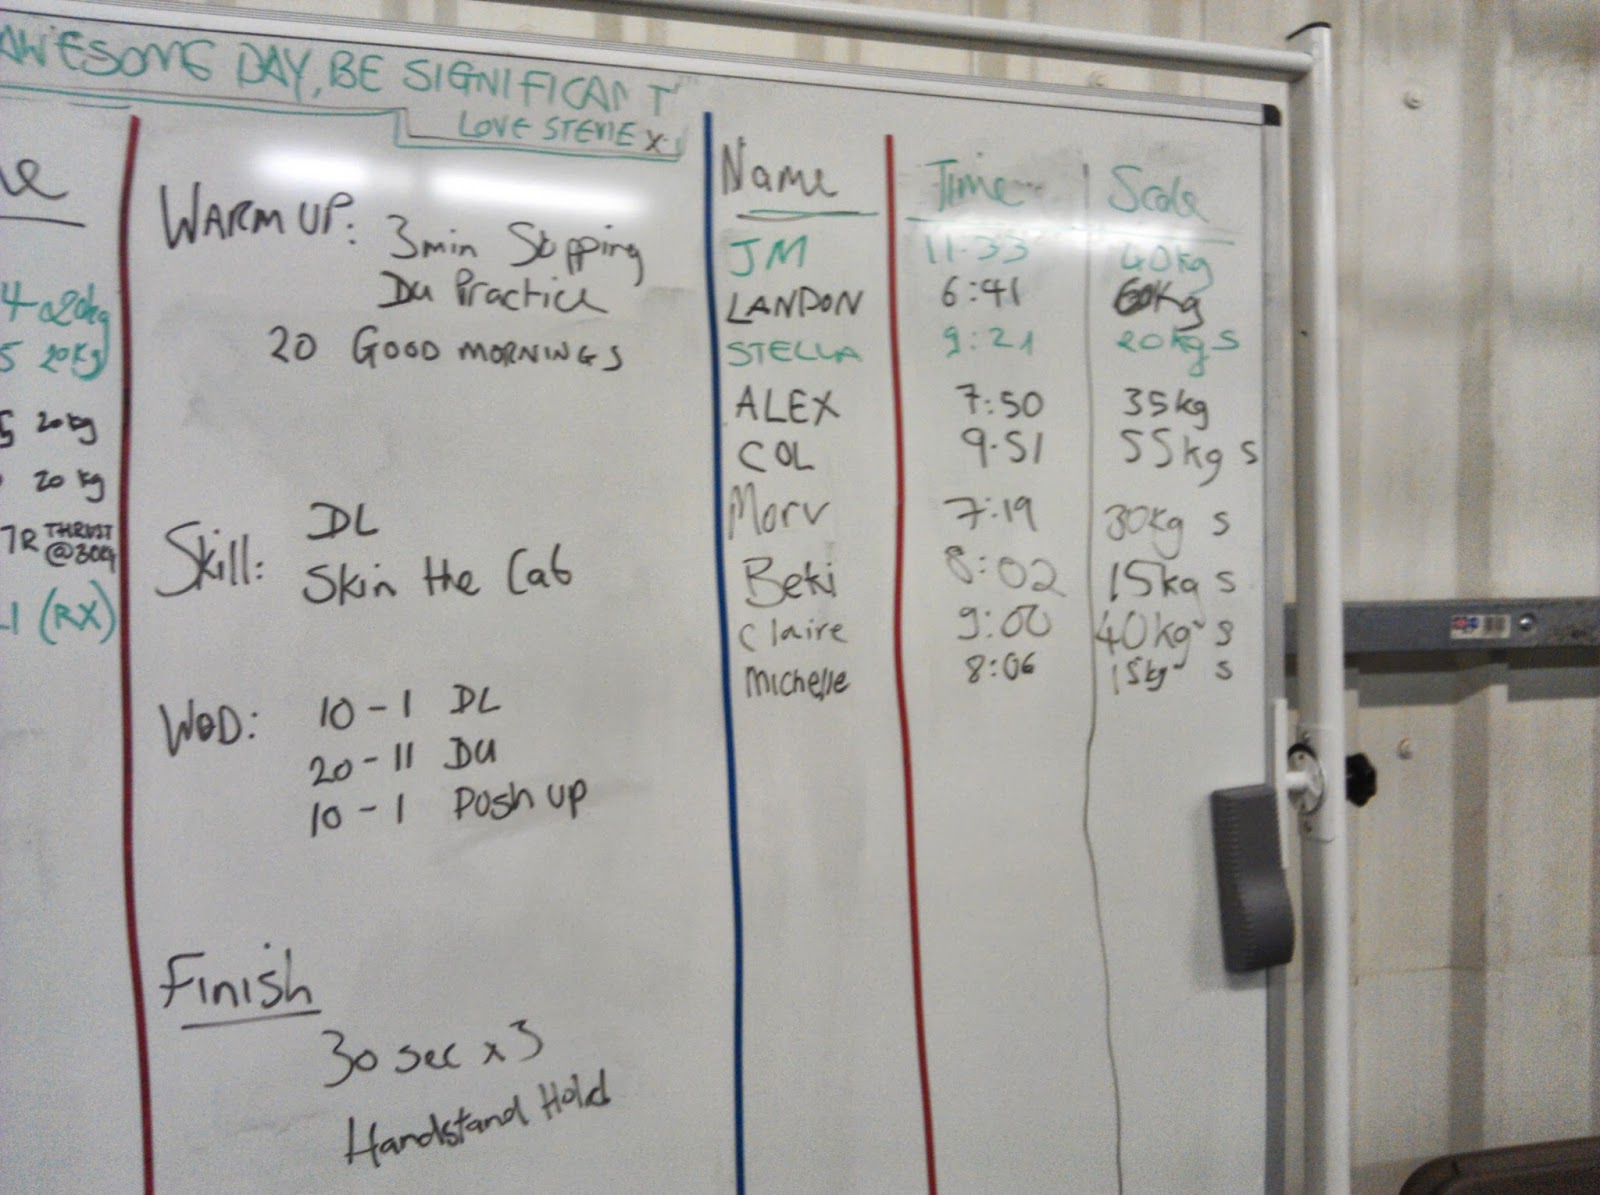 AWESOME DAY, BE SIGNIFICANT"
LOVE STEVIE x
4 20kg
5 20kg
20kg
20kg
7R THRUST
@30kg
(RX)
WARM UP: 3min Skipping
Du Practice
20 GOOD MORNINGS
Skill: DL
Skin the Cat
WOD: 10-1 DL
20-11 DU
10-1 Push up
Finish
30 sec x 3
Handstand Hold
Name Time Scale
JM 11:33 40kg
LANDON 6:41 60kg
STELLA 9:21 20kg S
ALEX 7:50 35kg
COL 9.51 55kg s
Morv 7:19 30kg s
Beki 8:02 15kg s
Claire 9:00 40kg s
Michelle 8:06 15kg s